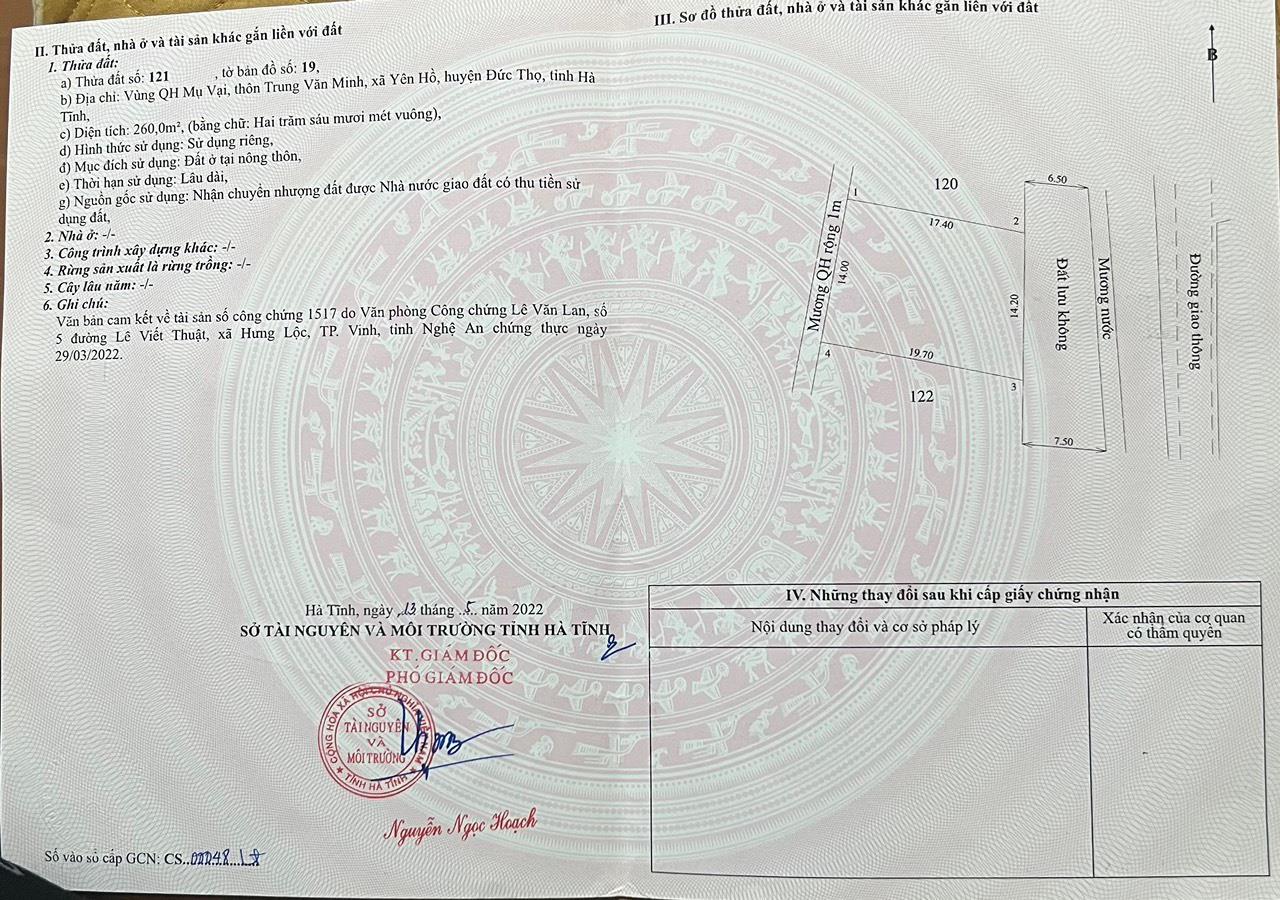 II. Thửa đất, nhà ở và tài sản khác gắn liền với đất
1. Thửa đất:
a) Thửa đất số: 121 , tờ bản đồ số: 19,
b) Địa chỉ: Vùng QH Mụ Vại, thôn Trung Văn Minh, xã Yên Hồ, huyện Đức Thọ, tỉnh Hà
Tĩnh,
c) Diện tích: 260,0m², (bằng chữ: Hai trăm sáu mươi mét vuông),
d) Hình thức sử dụng: Sử dụng riêng,
đ) Mục đích sử dụng: Đất ở tại nông thôn,
e) Thời hạn sử dụng: Lâu dài,
g) Nguồn gốc sử dụng: Nhận chuyển nhượng đất được Nhà nước giao đất có thu tiền sử
dụng đất,
2. Nhà ở: -/-
3. Công trình xây dựng khác: -/-
4. Rừng sản xuất là rừng trồng: -/-
5. Cây lâu năm: -/-
6. Ghi chú:
Văn bản cam kết về tài sản số công chứng 1517 do Văn phòng Công chứng Lê Văn Lan, số
5 đường Lê Viết Thuật, xã Hưng Lộc, TP. Vinh, tỉnh Nghệ An chứng thực ngày
29/03/2022.
Hà Tĩnh, ngày 13 tháng 5 năm 2022
SỞ TÀI NGUYÊN VÀ MÔI TRƯỜNG TỈNH HÀ TĨNH
KT.GIÁM ĐỐC
PHÓ GIÁM ĐỐC
CỘNG HÒA XÃ HỘI CHỦ NGHĨA VIỆT NAM
SỞ
TÀI NGUYÊN
VÀ
MÔI TRƯỜNG
★ TỈNH HÀ TĨNH ★
Nguyễn Ngọc Hoạch
Số vào sổ cấp GCN: CS..
III. Sơ đồ thửa đất, nhà ở và tài sản khác gắn liền với đất
B
120
6.50
1
17.40
2
Mương QH rộng 1m
14.00
14.20
Đất lưu không
Mương nước
Đường giao thông
4
19.70
3
122
7.50
IV. Những thay đổi sau khi cấp giấy chứng nhận
Nội dung thay đổi và cơ sở pháp lý
Xác nhận của cơ quan
có thẩm quyền